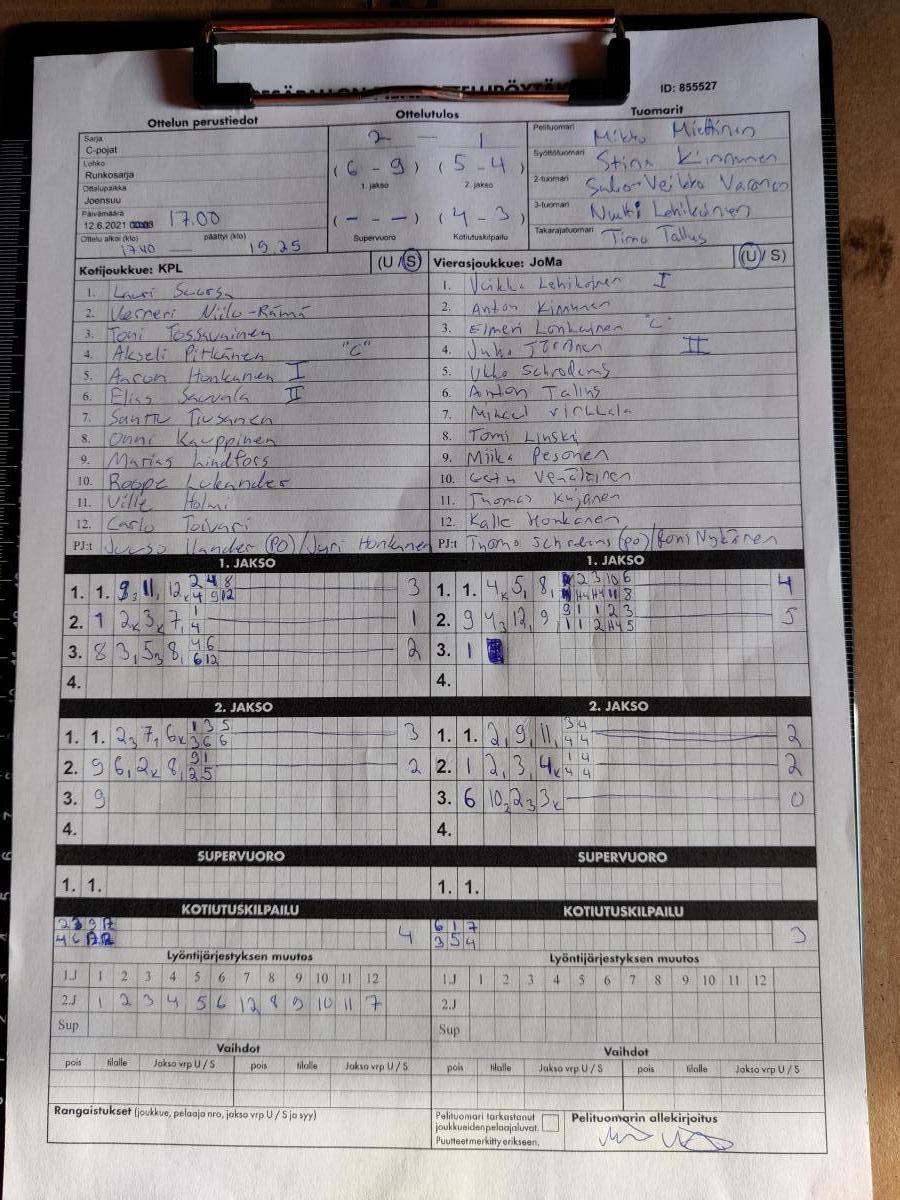 ID: 855527
Ottelun perustiedot
Ottelutulos
Tuomarit
Sarja
C-pojat
Lohko
Runkosarja
Ottelupaikka
Joensuu
Päivämäärä
12.6.2021 17.00
Ottelu alkoi (klo) päättyi (klo)
17.40 — 19.25
2 — 1
(6 - 9) (5 - 4)
1. jakso 2. jakso
(- - -) (4 - 3)
Supervuoro Kotiutuskilpailu
Pelituomari Mikko Miettinen
Syöttötuomari Stina Kinnunen
2-tuomari Suko-Veikko Varonen
3-tuomari Nuuti Lehikoinen
Takarajatuomari Timo Tallus
Kotijoukkue: KPL (U / S)
1. Lauri Suursa
2. Verneri Niilo-Rämä
3. Toni Tossavainen
4. Akseli Pitkänen "C"
5. Aaron Honkanen I
6. Elias Sauvala II
7. Santtu Tiusanen
8. Onni Kauppinen
9. Matias Lindfors
10. Roope Lukander
11. Ville Holmi
12. Carlo Toivari
PJ:t Juuso Ilander (PO) / Jyri Honkanen
Vierasjoukkue: JoMa (U / S)
1. Veikka Lehikoinen I
2. Anton Kinnunen
3. Elmeri Lonkainen "C"
4. Juho Törönen II
5. Ukko Schroderus
6. Anton Tallus
7. Mikael Virkkala
8. Tomi Linski
9. Miika Pesonen
10. Venäläinen
11. Thomas Kujanen
12. Kalle Honkanen
PJ:t Tuomo Schroderus (PO) / Roni Nykänen
1. JAKSO
1. 1. 3
2. 1 2k 3k 7, 1
3. 8 3, 5 8, 2
4.
1. JAKSO
1. 1. 4k 5, 8, 4
2. 9 4 12, 9, 5
3. 1
4.
2. JAKSO
1. 1. 2 7, 6k 3
2. 9 6, 2k 8, 2
3. 9
4.
2. JAKSO
1. 1. 2, 9, 11, 2
2. 1 2, 3, 4k 2
3. 6 10 2 3k 0
4.
SUPERVUORO
1. 1.
SUPERVUORO
1. 1.
KOTIUTUSKILPAILU
4
KOTIUTUSKILPAILU
6 1 7
3 5 4
3
Lyöntijärjestyksen muutos
1.J 1 2 3 4 5 6 7 8 9 10 11 12
2.J 1 2 3 4 5 6 12 8 9 10 11 7
Sup
Lyöntijärjestyksen muutos
1.J 1 2 3 4 5 6 7 8 9 10 11 12
2.J
Sup
Vaihdot
pois tilalle Jakso vrp U / S pois tilalle Jakso vrp U / S
Vaihdot
pois tilalle Jakso vrp U / S pois tilalle Jakso vrp U / S
Rangaistukset (joukkue, pelaaja nro, jakso vrp U / S ja syy)
Pelituomari tarkastanut
joukkueiden pelaajaluvat.
Puutteet merkitty erikseen.
Pelituomarin allekirjoitus